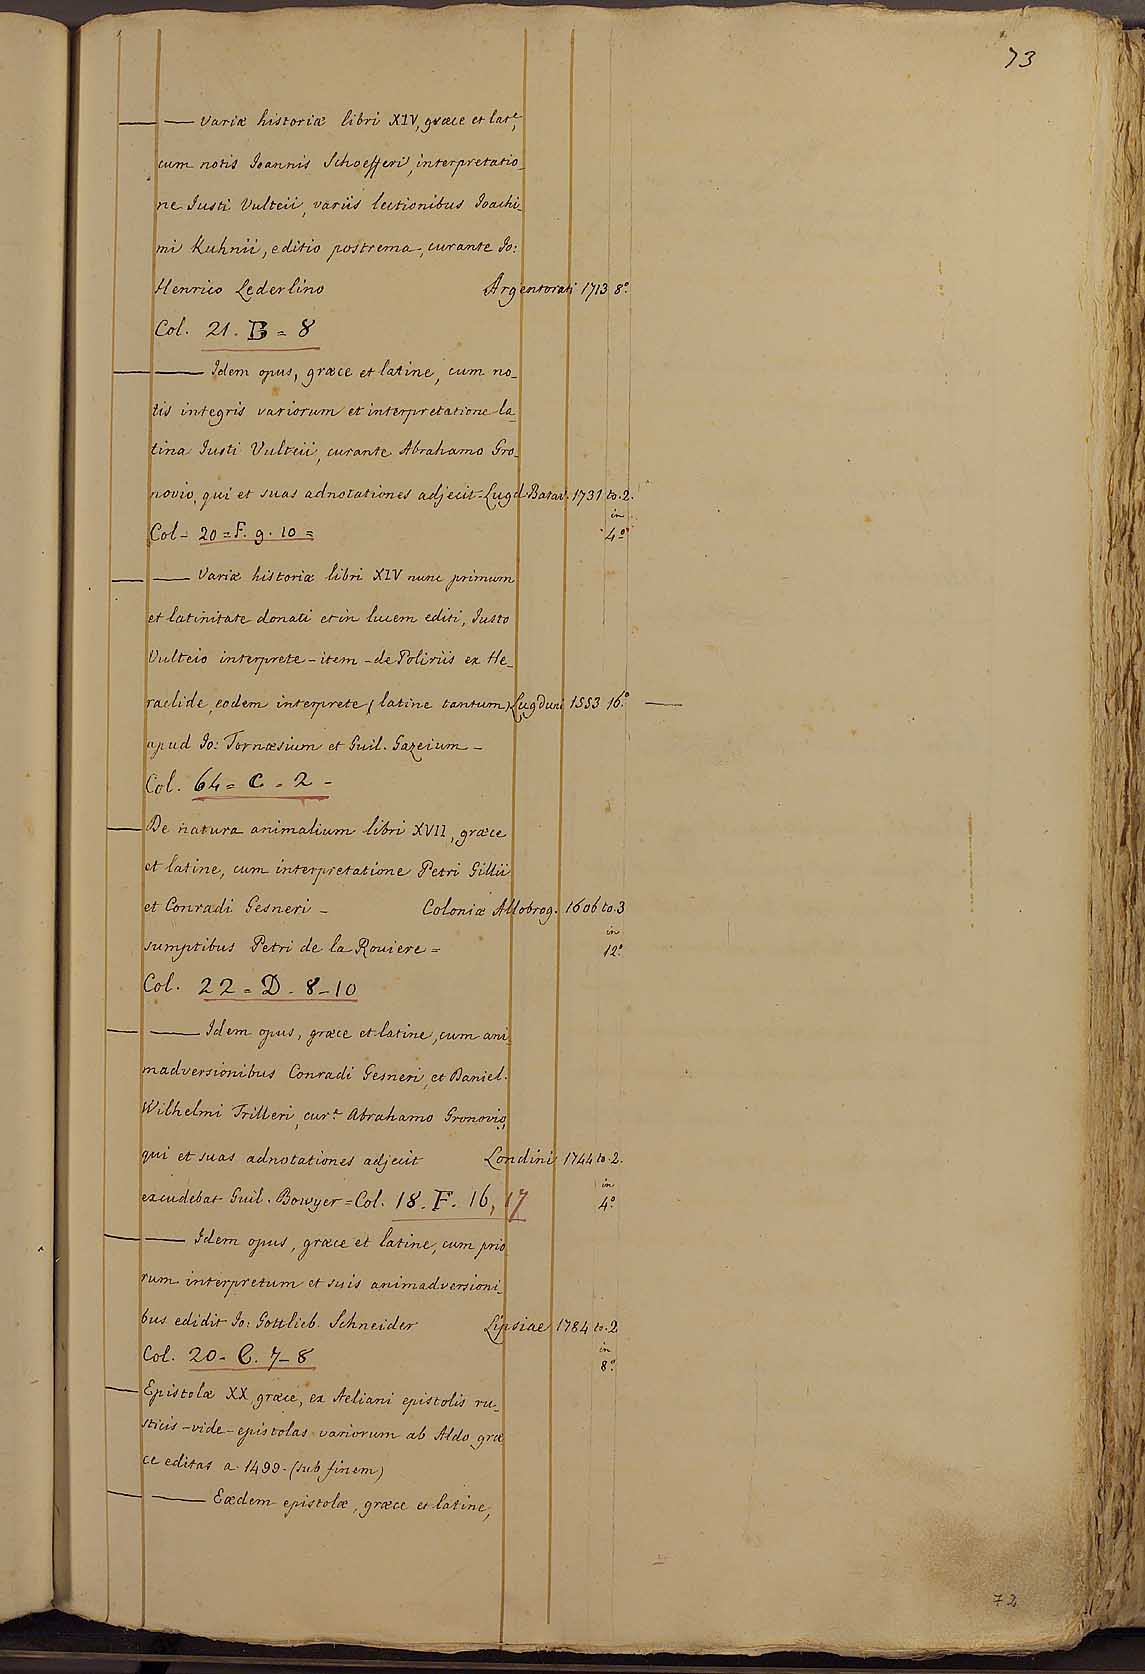 73
— — Variæ historiæ libri XIV, græce et latᵉ,
cum notis Ioannis Schoefferi, interpretatio_
ne Iusti Vulteii, variis lectionibus Ioachi_
mi Kuhnii, editio postrema, curante Io:
Henrico Lederlino Argentorati 1713 8.º
Col. 21. B = 8
— — Idem opus, græce et latine, cum no_
tis integris variorum et interpretatione la_
tina Iusti Vulteii, curante Abrahamo Gro_
novio, qui et suas adnotationes adjecit - Lugd. Batav. 1731 to. 2.
in
Col = 20 = F. 9. 10 = 4º
— — Variæ historiæ libri XIV nunc primum
et latinitate donati et in lucem editi, Iusto
Vulteio interprete - item - de Politiis ex He_
raclide, eodem interprete (latine tantum) Lugduni 1553 16.º —
apud Io: Tornæsium et Guil. Gazeium -
Col. 64 = C = 2 -
— De natura animalium libri XVII, græce
et latine, cum interpretatione Petri Gillii
et Conradi Gesneri - Coloniæ Allobrog. 1606 to. 3
in
sumptibus Petri de la Rouiere = 12.º
Col. 22 = D - 8 - 10
— — Idem opus, græce et latine, cum ani_
madversionibus Conradi Gesneri, et Daniel.
Wilhelmi Trilleri, curᵉ Abrahamo Gronovio,
qui et suas adnotationes adjecit Londini 1744 to. 2.
in
excudebat Guil. Bowyer = Col. 18. F. 16, 17 4.º
— — Idem opus, græce et latine, cum prio
rum interpretum et suis animadversioni_
bus edidit Io: Gottlieb. Schneider Lipsiae 1784 to. 2
in
Col. 20 - C. 7 - 8 8.º
— Epistolæ XX, græce, ex Aeliani epistolis ru_
sticis - vide - epistolas variorum ab Aldo græ
ce editas a. 1499 - (sub finem)
— — Eædem epistolæ, græce et latine,
72